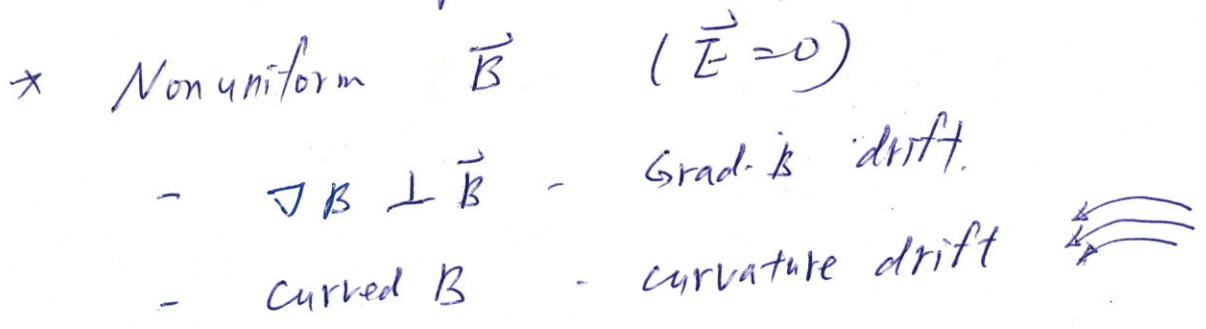 * Nonuniform B⃗ (E⃗ = 0)
- ∇B ⊥ B⃗ - Grad-B drift.
- curved B - curvature drift